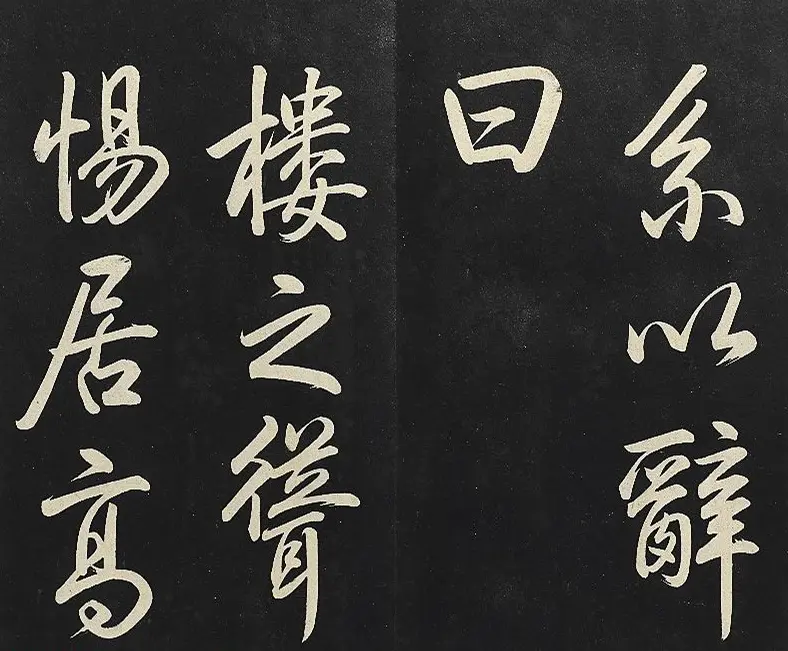 系以辭
曰
樓之聳
惕居高